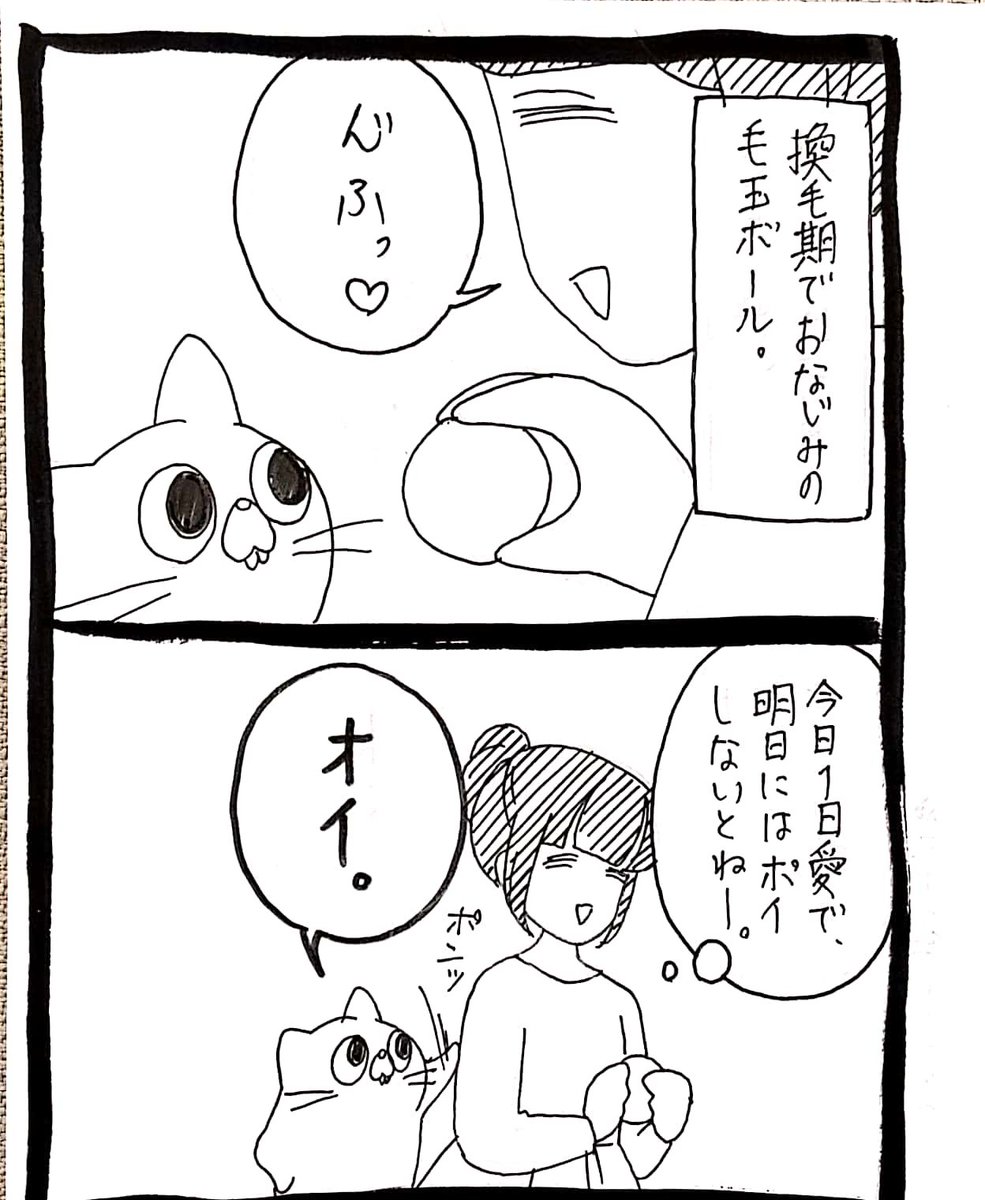 換毛期でおなじみの
毛玉ボール。
んふっ♡
今日1日愛で、
明日にはポイ
しないとねー。
オイ。
ポンッ